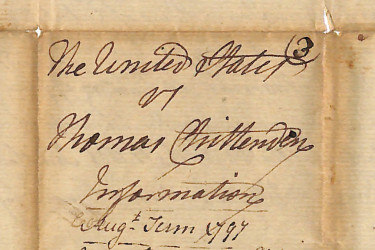 The United States (3
vs
Thomas Chittenden
Information
Augt. Term 1797